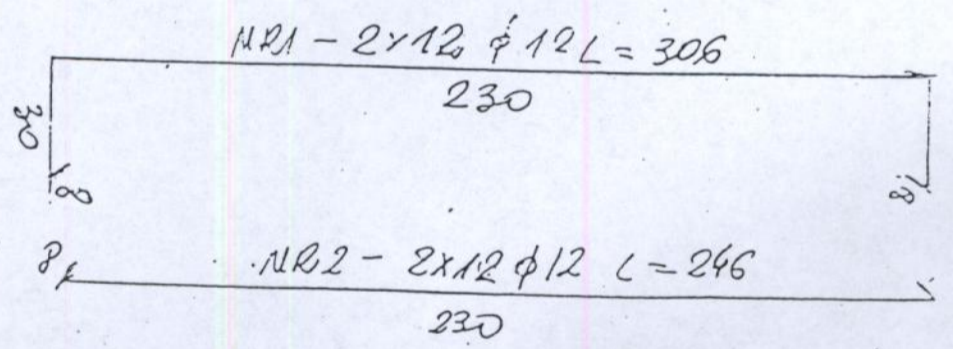 NR1 - 2x12 ϕ 12 L = 306
230
30
8
8
8
NR2 - 2x12 ϕ 12 L = 246
230